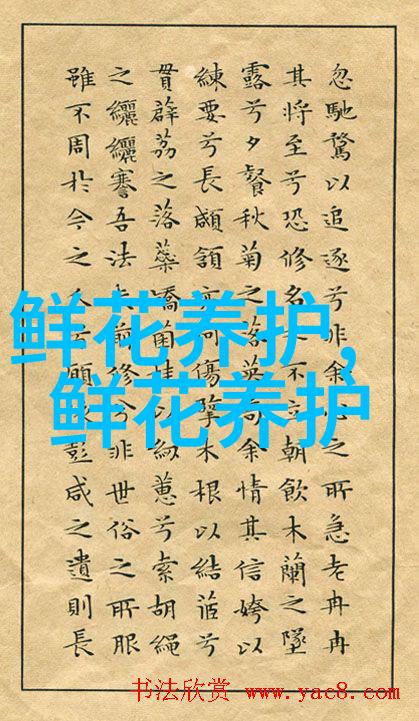 忽馳騖以追逐兮非余心之所急老冉冉
其將至兮恐修名之不立朝飲木蘭之墜
露兮夕餐秋菊之落英苟余情其信姱以
練要兮長顑頷亦何傷擥木根以結茝兮
貫薜荔之落蘂矯菌桂以紉蕙兮索胡繩
之纚纚謇吾法夫前修兮非世俗之所服
雖不周於今之人兮願依彭咸之遺則長
鲜花养护,
鲜花养护
书法欣赏 www.yac8.com